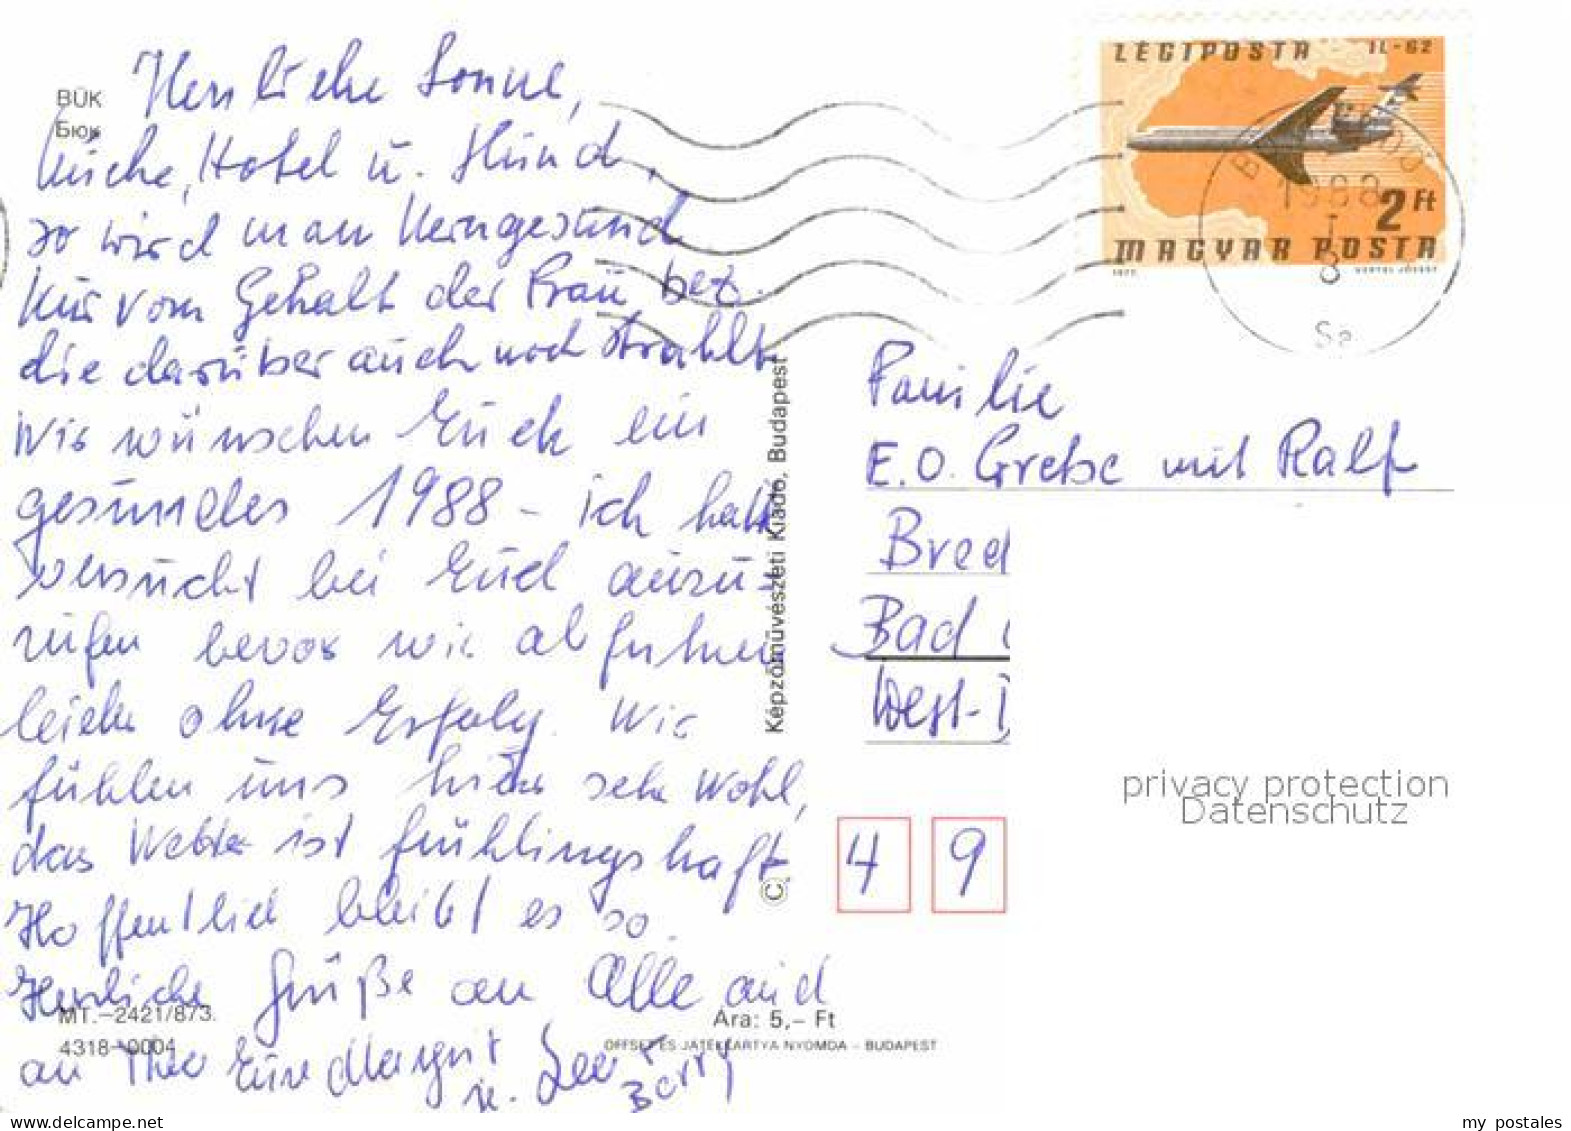 LÉGIPOSTA IL-62
2 Ft
MAGYAR POSTA
1977 VERTEL JÓZSEF
1988
I
8
BÜK
Бюк
Herrliche Sonne,
Küche, Hotel u. Hund,
so wird man kerngesund
Nur vom Gehalt der Frau bez.
die darüber auch noch strahlt
Wir wünschen Euch ein
gesundes 1988 - ich hatte
versucht bei Euch anzu-
rufen bevor wir abfuhren
leider ohne Erfolg. Wir
fühlen uns hier sehr wohl,
das Wetter ist frühlingshaft.
Hoffentlich bleibt es so.
Herzliche Grüße an Alle auch
an Theo Eure Margrit
u. Leo + Borry
MT.-2421/873.
4318-0004
Ára: 5,- Ft
OFFSET ÉS JÁTÉKKÁRTYA NYOMDA - BUDAPEST
© Képzőművészeti Kiadó, Budapest
Familie
E.O. Grebe mit Ralf
Bred
Bad
West-D
4 9
privacy protection
Datenschutz
www.delcampe.net
my_postales